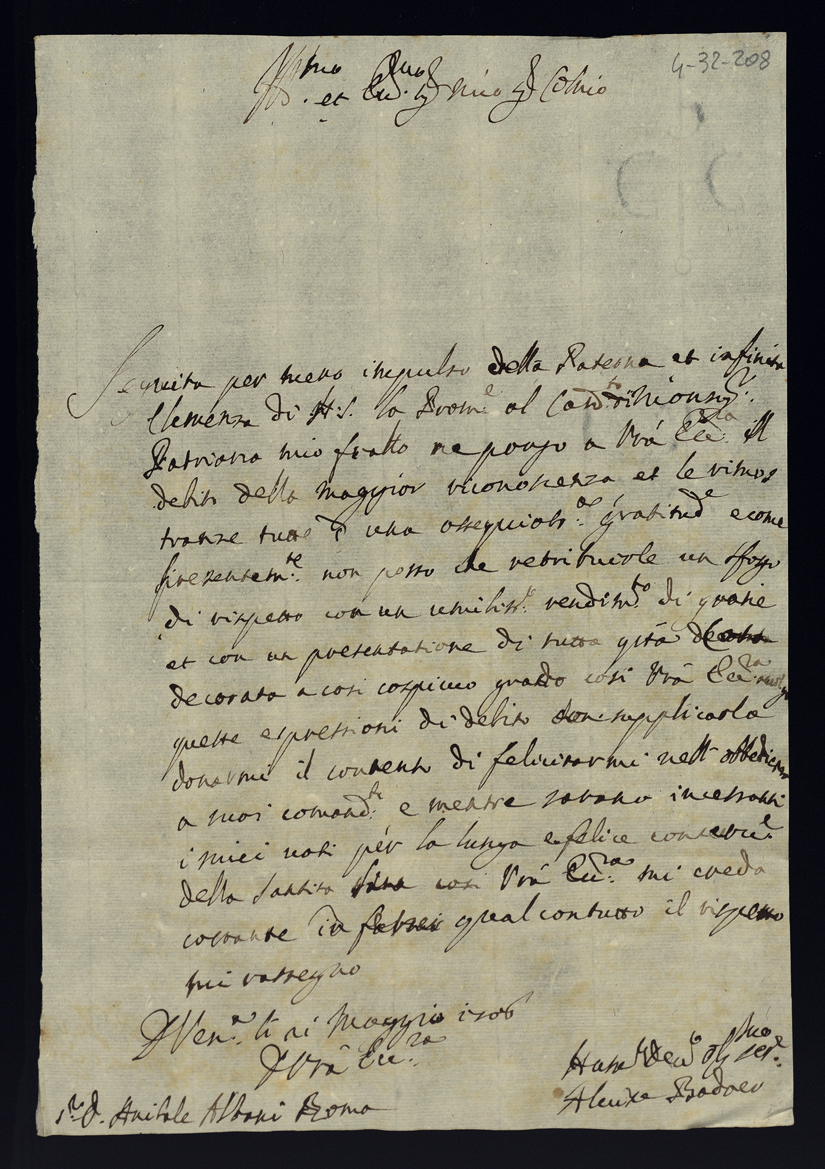 4-32-208
Ill.mo et Ecc.mo Sig. mio Sig. Colmo
Seguita per mero impulso della Paterna et infinita
Clemenza di N. S. la Prom.e al Card.to di Monsig.r
Patriarca mio fratello ne porgo a Vrâ Ecc.za il
debito della maggior riconoscenza et le rimos
tranze tutte d' una ossequios.ma gratitud.e e come
presentem.te non posso che retribuirle un sfogo
di rispetto con un umiliss.o rendim.to di gratie
et con un presentatione di tutta q.sta
decorata a cosi cospicuo grado cosi Vrâ Ecc.za
queste espressioni di debito supplicarla
donarmi il contento di felicitarmi nell' obbedienza
a suoi comand.ti e mentre sarano incessanti
i miei voti per la lunga e felice conserv.e
della Santita cosi Vrâ Ecc.za mi creda
costante in qual con tutto il rispetto
mi rassegno
Ven.a li Maggio 1706
D Vrâ Ecc.za
Hum. Dev. Obl.mo Ser.e
Alvise Badoer
S.r D. Anibale Albani Roma